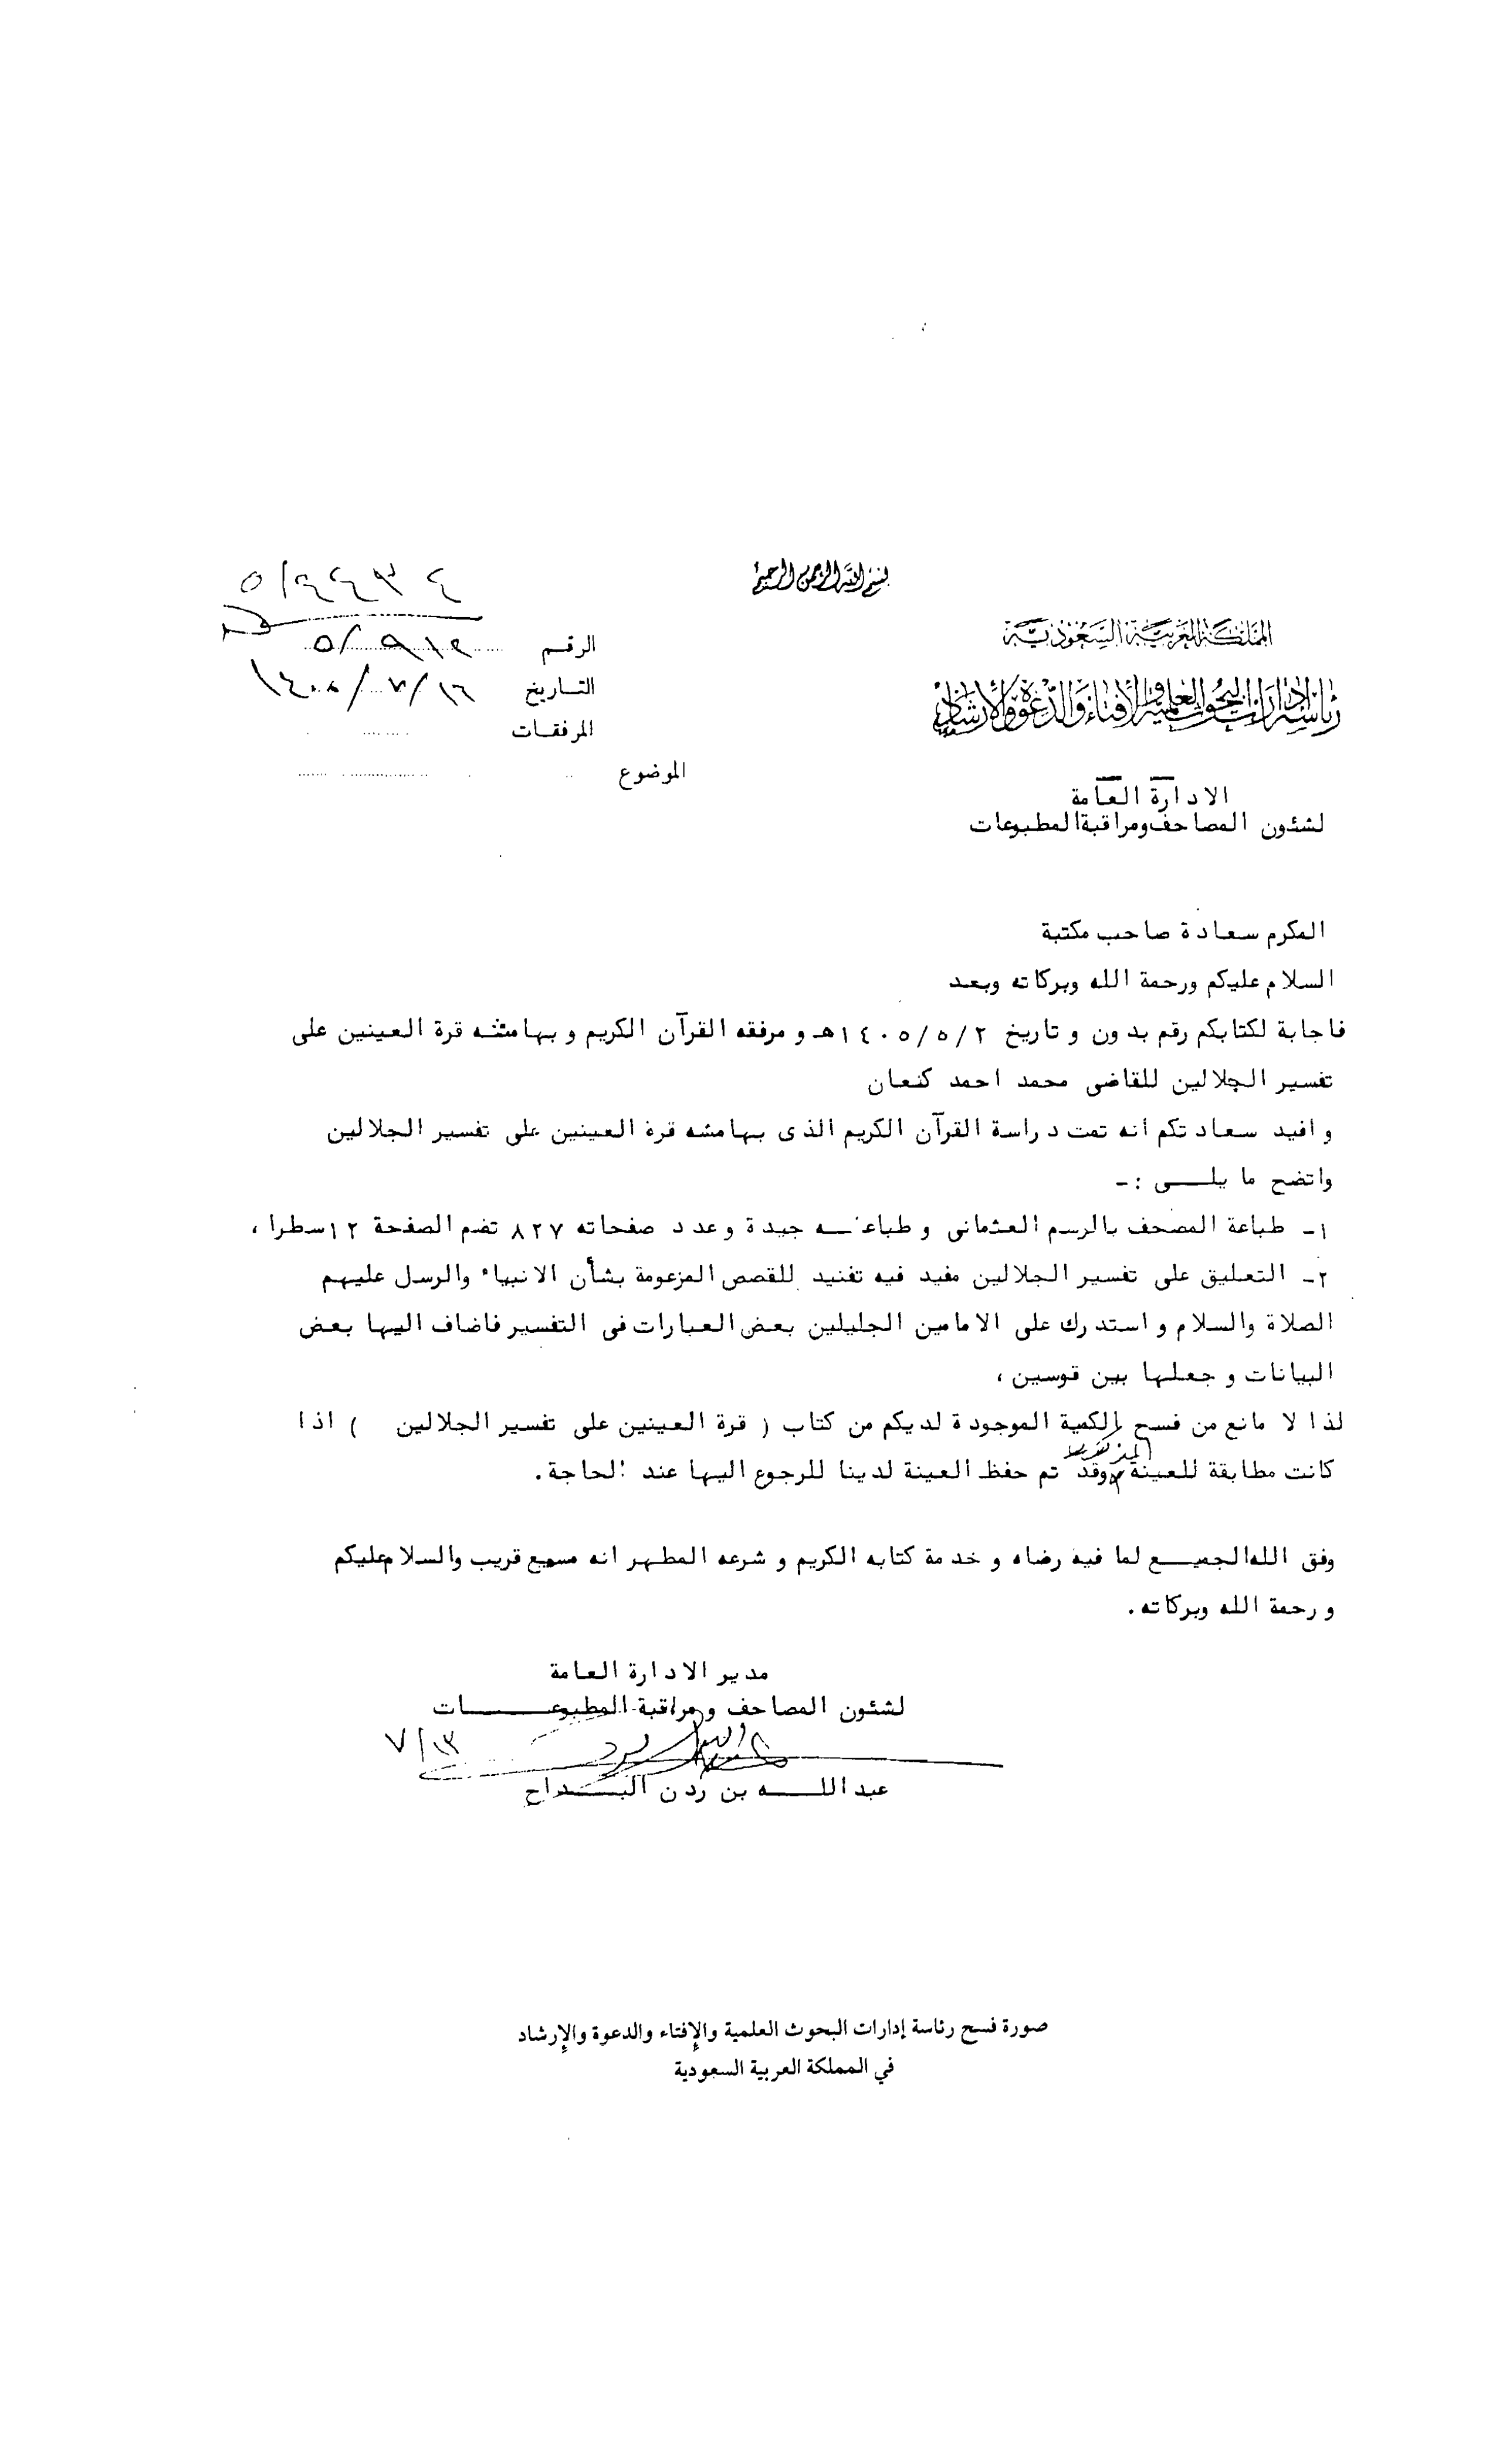 بسم الله الرحمن الرحيم
المملكة العربية السعودية
رئاسة إدارات البحوث العلمية والإفتاء والدعوة والإرشاد
الادارة العامة
لشئون المصاحف ومراقبة المطبوعات
الرقم ٥/٩١٢
التاريخ ١٦/٧/١٤٠٥
المرفقات
الموضوع
المكرم سعادة صاحب مكتبة
السلام عليكم ورحمة الله وبركاته وبعد
فاجابة لكتابكم رقم بدون وتاريخ ١٤٠٥/٥/٢هـ ومرفقه القرآن الكريم وبهامشه قرة العينين على
تفسير الجلالين للقاضى محمد احمد كنعان
وافيد سعادتكم انه تمت دراسة القرآن الكريم الذى بهامشه قرة العينين على تفسير الجلالين
واتضح ما يلـــى :-
١- طباعة المصحف بالرسم العثمانى وطباعتـــه جيدة وعدد صفحاته ٨٢٧ تضم الصفحة ١٢سطرا ،
٢- التعليق على تفسير الجلالين مفيد فيه تفنيد للقصص المزعومة بشأن الانبياء والرسل عليهم
الصلاة والسلام واستدرك على الامامين الجليلين بعض العبارات فى التفسير فاضاف اليها بعض
البيانات وجعلها بين قوسين ،
لذا لا مانع من فسح الكمية الموجودة لديكم من كتاب ( قرة العينين على تفسير الجلالين ) اذا
كانت مطابقة للعينة وقد تم حفظ العينة لدينا للرجوع اليها عند الحاجة.
وفق الله الجميـــع لما فيه رضاه وخدمة كتابه الكريم وشرعه المطهر انه سميع قريب والسلام عليكم
ورحمة الله وبركاته.
مدير الادارة العامة
لشئون المصاحف ومراقبة المطبوعـــات
٧/١٣
عبداللـــه بن ردن البـــداح
صورة فسح رئاسة إدارات البحوث العلمية والإفتاء والدعوة والإرشاد
في المملكة العربية السعودية